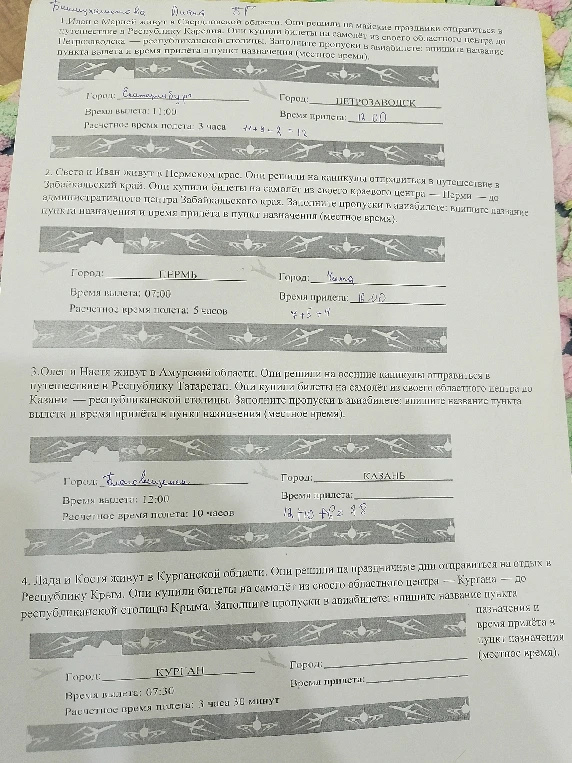 1.Иван с Марией живут в Свердловской области. Они решили на майские праздники отправиться в
путешествие в Республику Карелия. Они купили билеты на самолёт из своего областного центра до
Петрозаводска — республиканской столицы. Заполните пропуски в авиабилете: впишите название
пункта вылета и время прилёта в пункт назначения (местное время).
Город: Екатеринбург Город: ПЕТРОЗАВОДСК
Время вылета: 11:00 Время прилета: 12 00
Расчетное время полета: 3 часа 11+3-2=12
2. Света и Иван живут в Пермском крае. Они решили на каникулы отправиться в путешествие в
Забайкальский край. Они купили билеты на самолёт из своего краевого центра — Перми — до
административного центра Забайкальского края. Заполните пропуски в авиабилете: впишите название
пункта назначения и время прилёта в пункт назначения (местное время).
Город: ПЕРМЬ Город: Чита
Время вылета: 07:00 Время прилета:
Расчетное время полета: 5 часов
3.Олег и Настя живут в Амурской области. Они решили на осенние каникулы отправиться в
путешествие в Республику Татарстан. Они купили билеты на самолёт из своего областного центра до
Казани — республиканской столицы. Заполните пропуски в авиабилете: впишите название пункта
вылета и время прилёта в пункт назначения (местное время).
Город: Город: КАЗАНЬ
Время вылета: 12:00 Время прилета:
Расчетное время полета: 10 часов
4. Лада и Костя живут в Курганской области. Они решили на праздничные дни отправиться на отдых в
Республику Крым. Они купили билеты на самолёт из своего областного центра — Кургана — до
республиканской столицы Крыма. Заполните пропуски в авиабилете: впишите название пункта
назначения и
время прилёта в
пункт назначения
(местное время).
Город: КУРГАН Город:
Время вылета: 07:30 Время прилета:
Расчетное время полета: 3 часа 30 минут